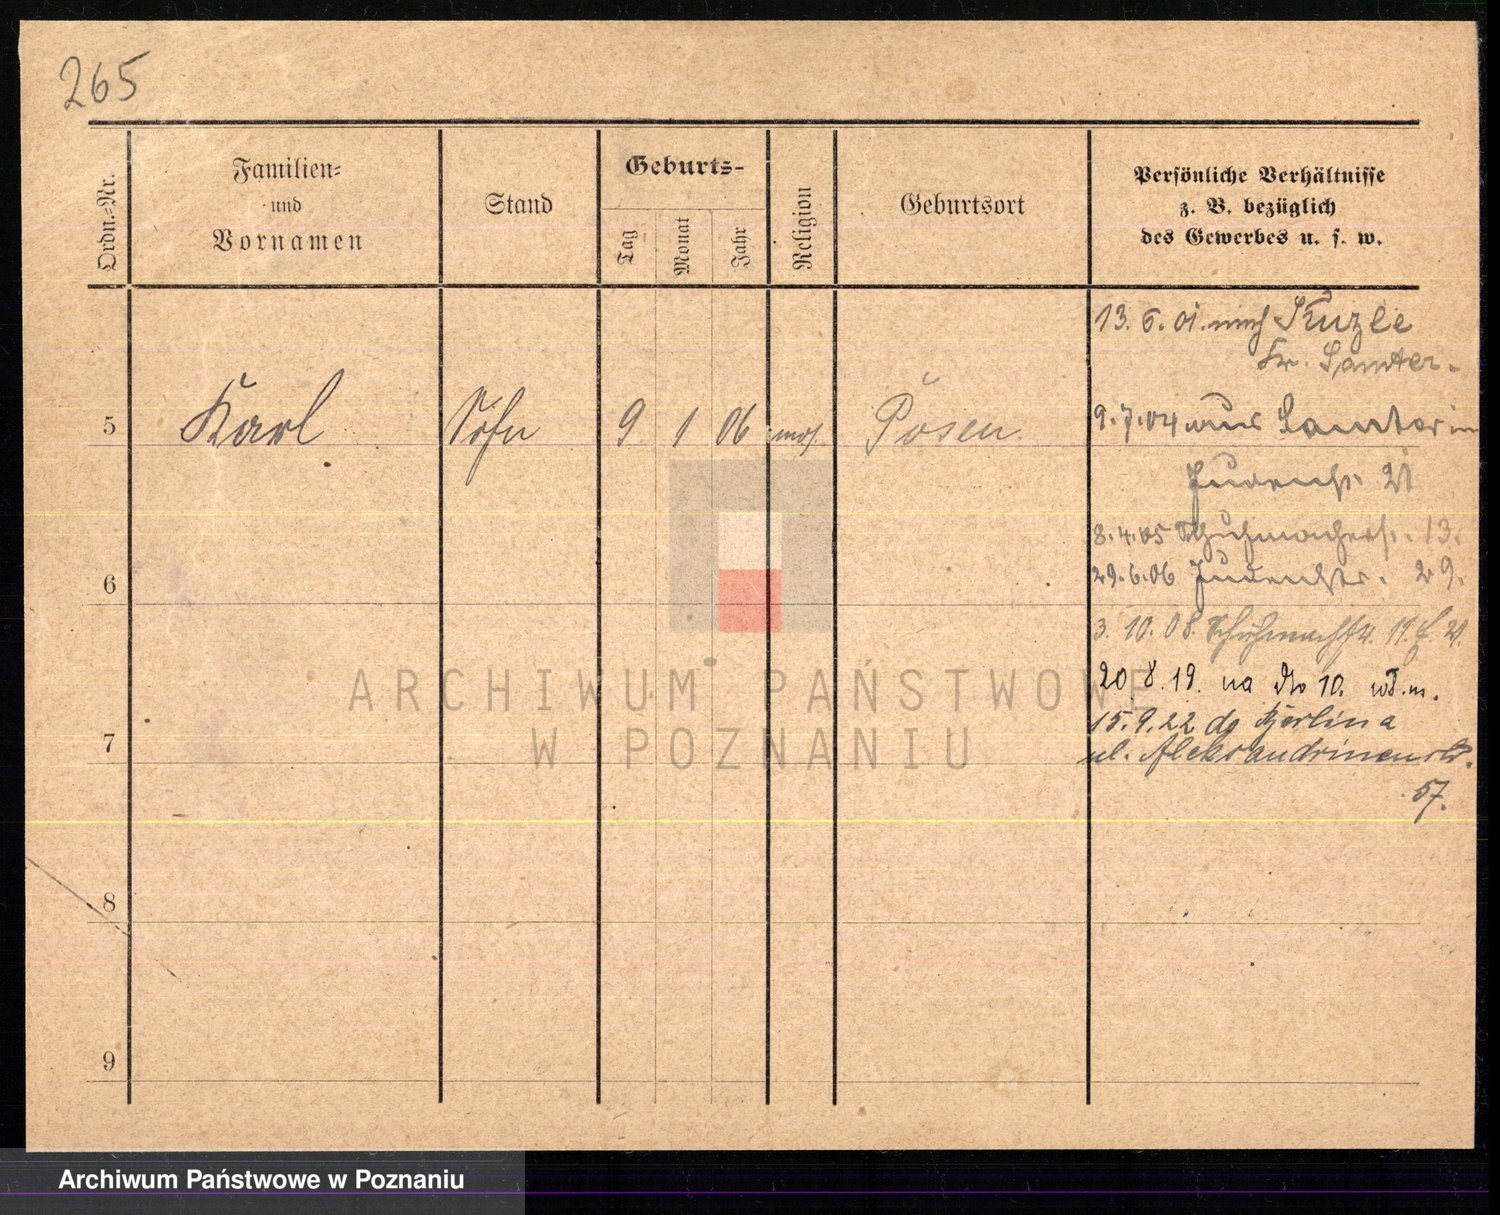 265
Ordn.=Nr.
Familien=
und
Vornamen
Stand
Geburts-
Tag
Monat
Jahr
Religion
Geburtsort
Persönliche Verhältnisse
z. B. bezüglich
des Gewerbes u. s. w.
13. 6. 01. nach
Kr. Samter.
5 Karl Sohn 9 1 06 mos. Posen
9.7.04 aus Samter in
Judenstr. 21
8.4.05 Schuhmacherstr. 13.
6
29.6.06 Judenstr. 29.
3. 10. 08. 19.
20.8.19. na No 10.
7
15.9.22 do Berlina
ul. Aleksandrinenstr.
57.
8
9
ARCHIWUM PAŃSTWOWE
W POZNANIU
Archiwum Państwowe w Poznaniu